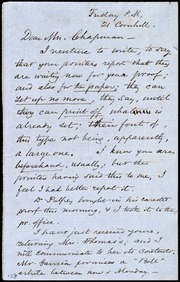 Friday P.M.
21 Cornhill.
Dear Mrs. Chapman —
I venture to write, to say
that your printers report that they
are waiting now for your proof;
and also for the paper; they can
set up no more, they say, until
they can print off what is
already set; their fonts of
this type not being, apparently,
a large one. I know you are
beforehand, usually; but the
printer having said this to me, I
feel I had better report it.
Dr Palfrey bought in his
proof this morning, & I took it to the
pr. office.
I have just received yours,
returning Mrs. Thomas's, and I
will communicate to her its contents.
Mr. Garrison promises a
article between now & Monday. —